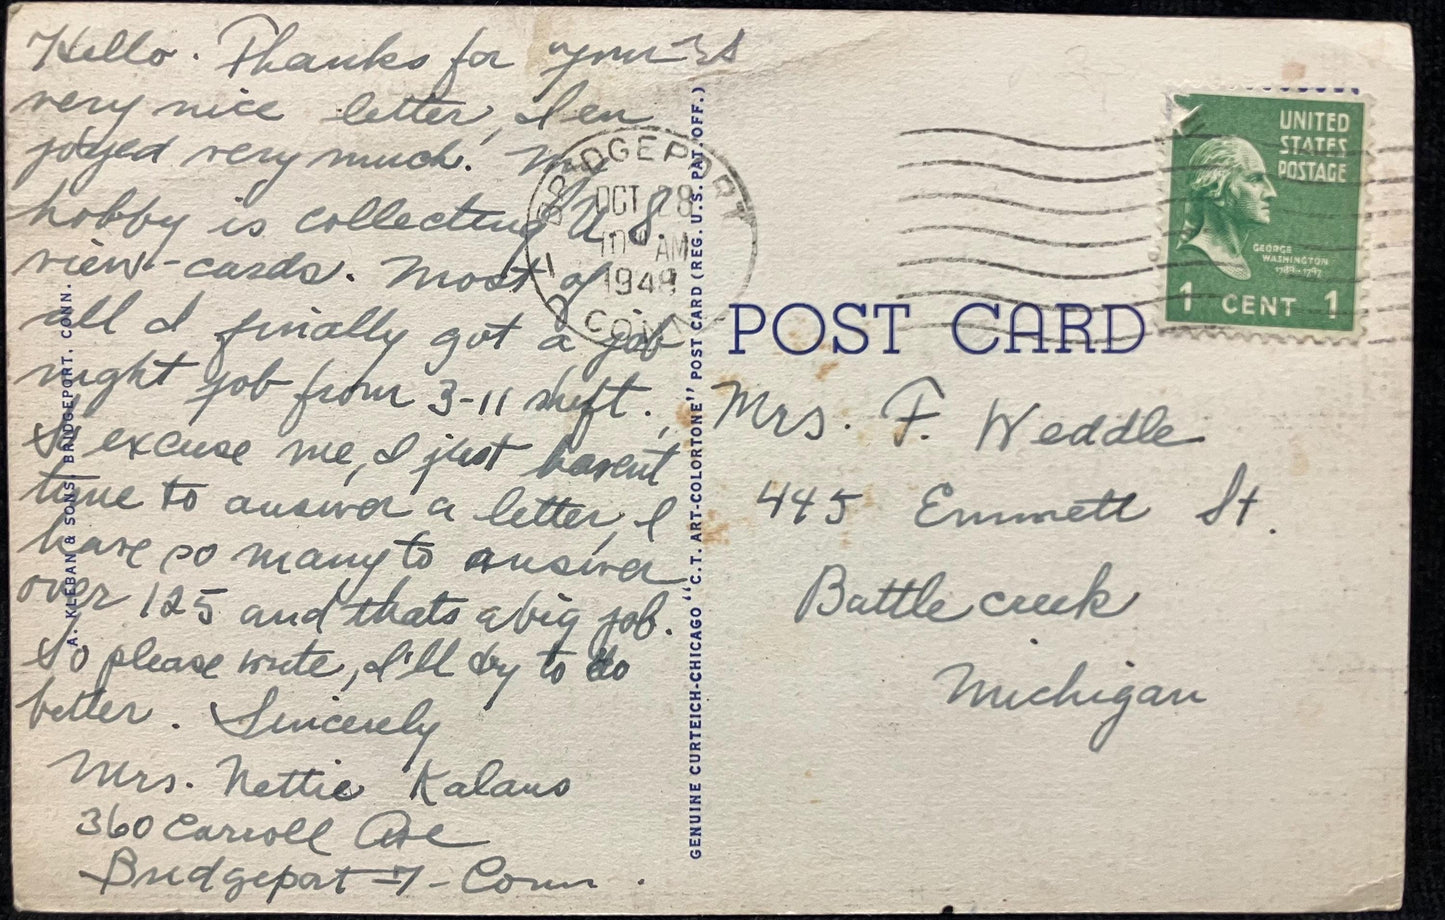 Hello. Thanks for your
very nice letter, I en
joyed very much. My
hobby is collecting U S
view-cards. Most of
all I finally got a job
night job from 3-11 shift.
So excuse me, I just havent
time to answer a letter, I
have so many to answer
over 125 and thats a big job.
So please write, I'll try to do
better. Sincerely
Mrs. Nettie Kalans
360 Carroll Ave
Bridgeport-7-Conn.
A. KLEBAN & SONS, BRIDGEPORT, CONN.
BRIDGEPORT
OCT 28
10 AM
1948
CONN.
1
GENUINE CURTEICH-CHICAGO "C.T. ART-COLORTONE" POST CARD (REG. U.S. PAT. OFF.)
POST CARD
UNITED
STATES
POSTAGE
GEORGE
WASHINGTON
1789-1797
1 CENT 1
Mrs. F. Weddle
445 Emmett St.
Battle creek
Michigan